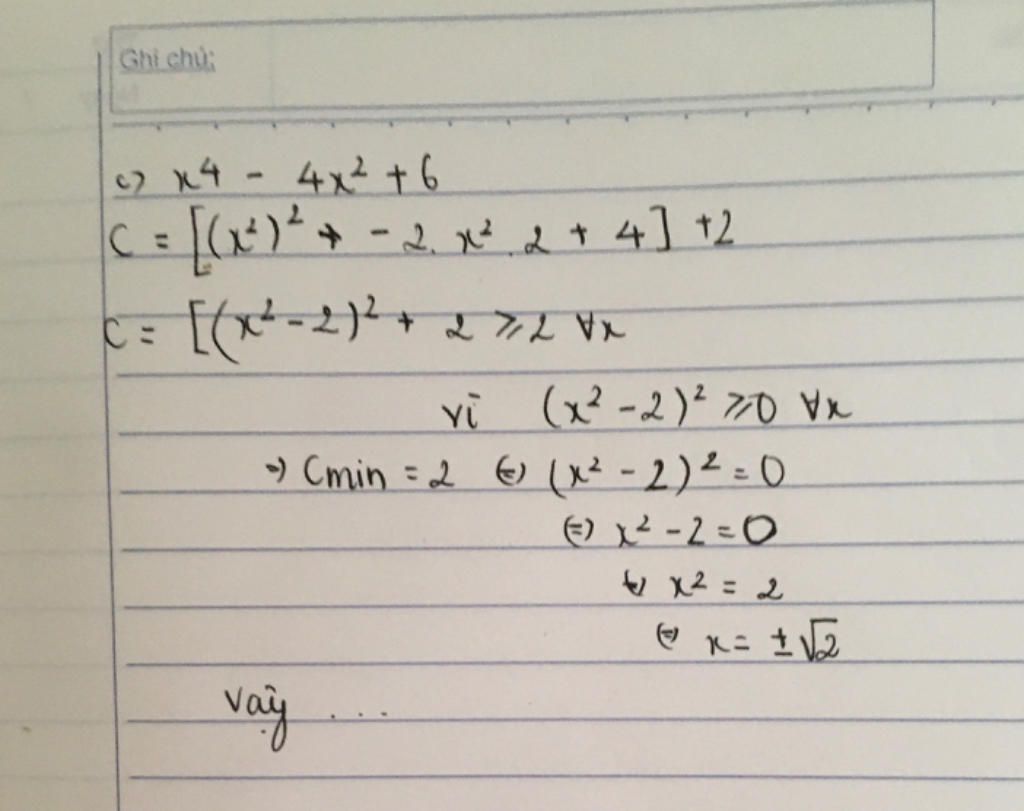 Ghi chú:
c) x⁴ - 4x² + 6
C = [(x²)² + - 2. x² . 2 + 4] + 2
C = [(x² - 2)² + 2 ⩾ 2 ∀x
vì (x² - 2)² ⩾ 0 ∀x
=> Cmin = 2 (=) (x² - 2)² = 0
(=) x² - 2 = 0
(=) x² = 2
(=) x = ±√2
Vậy ...